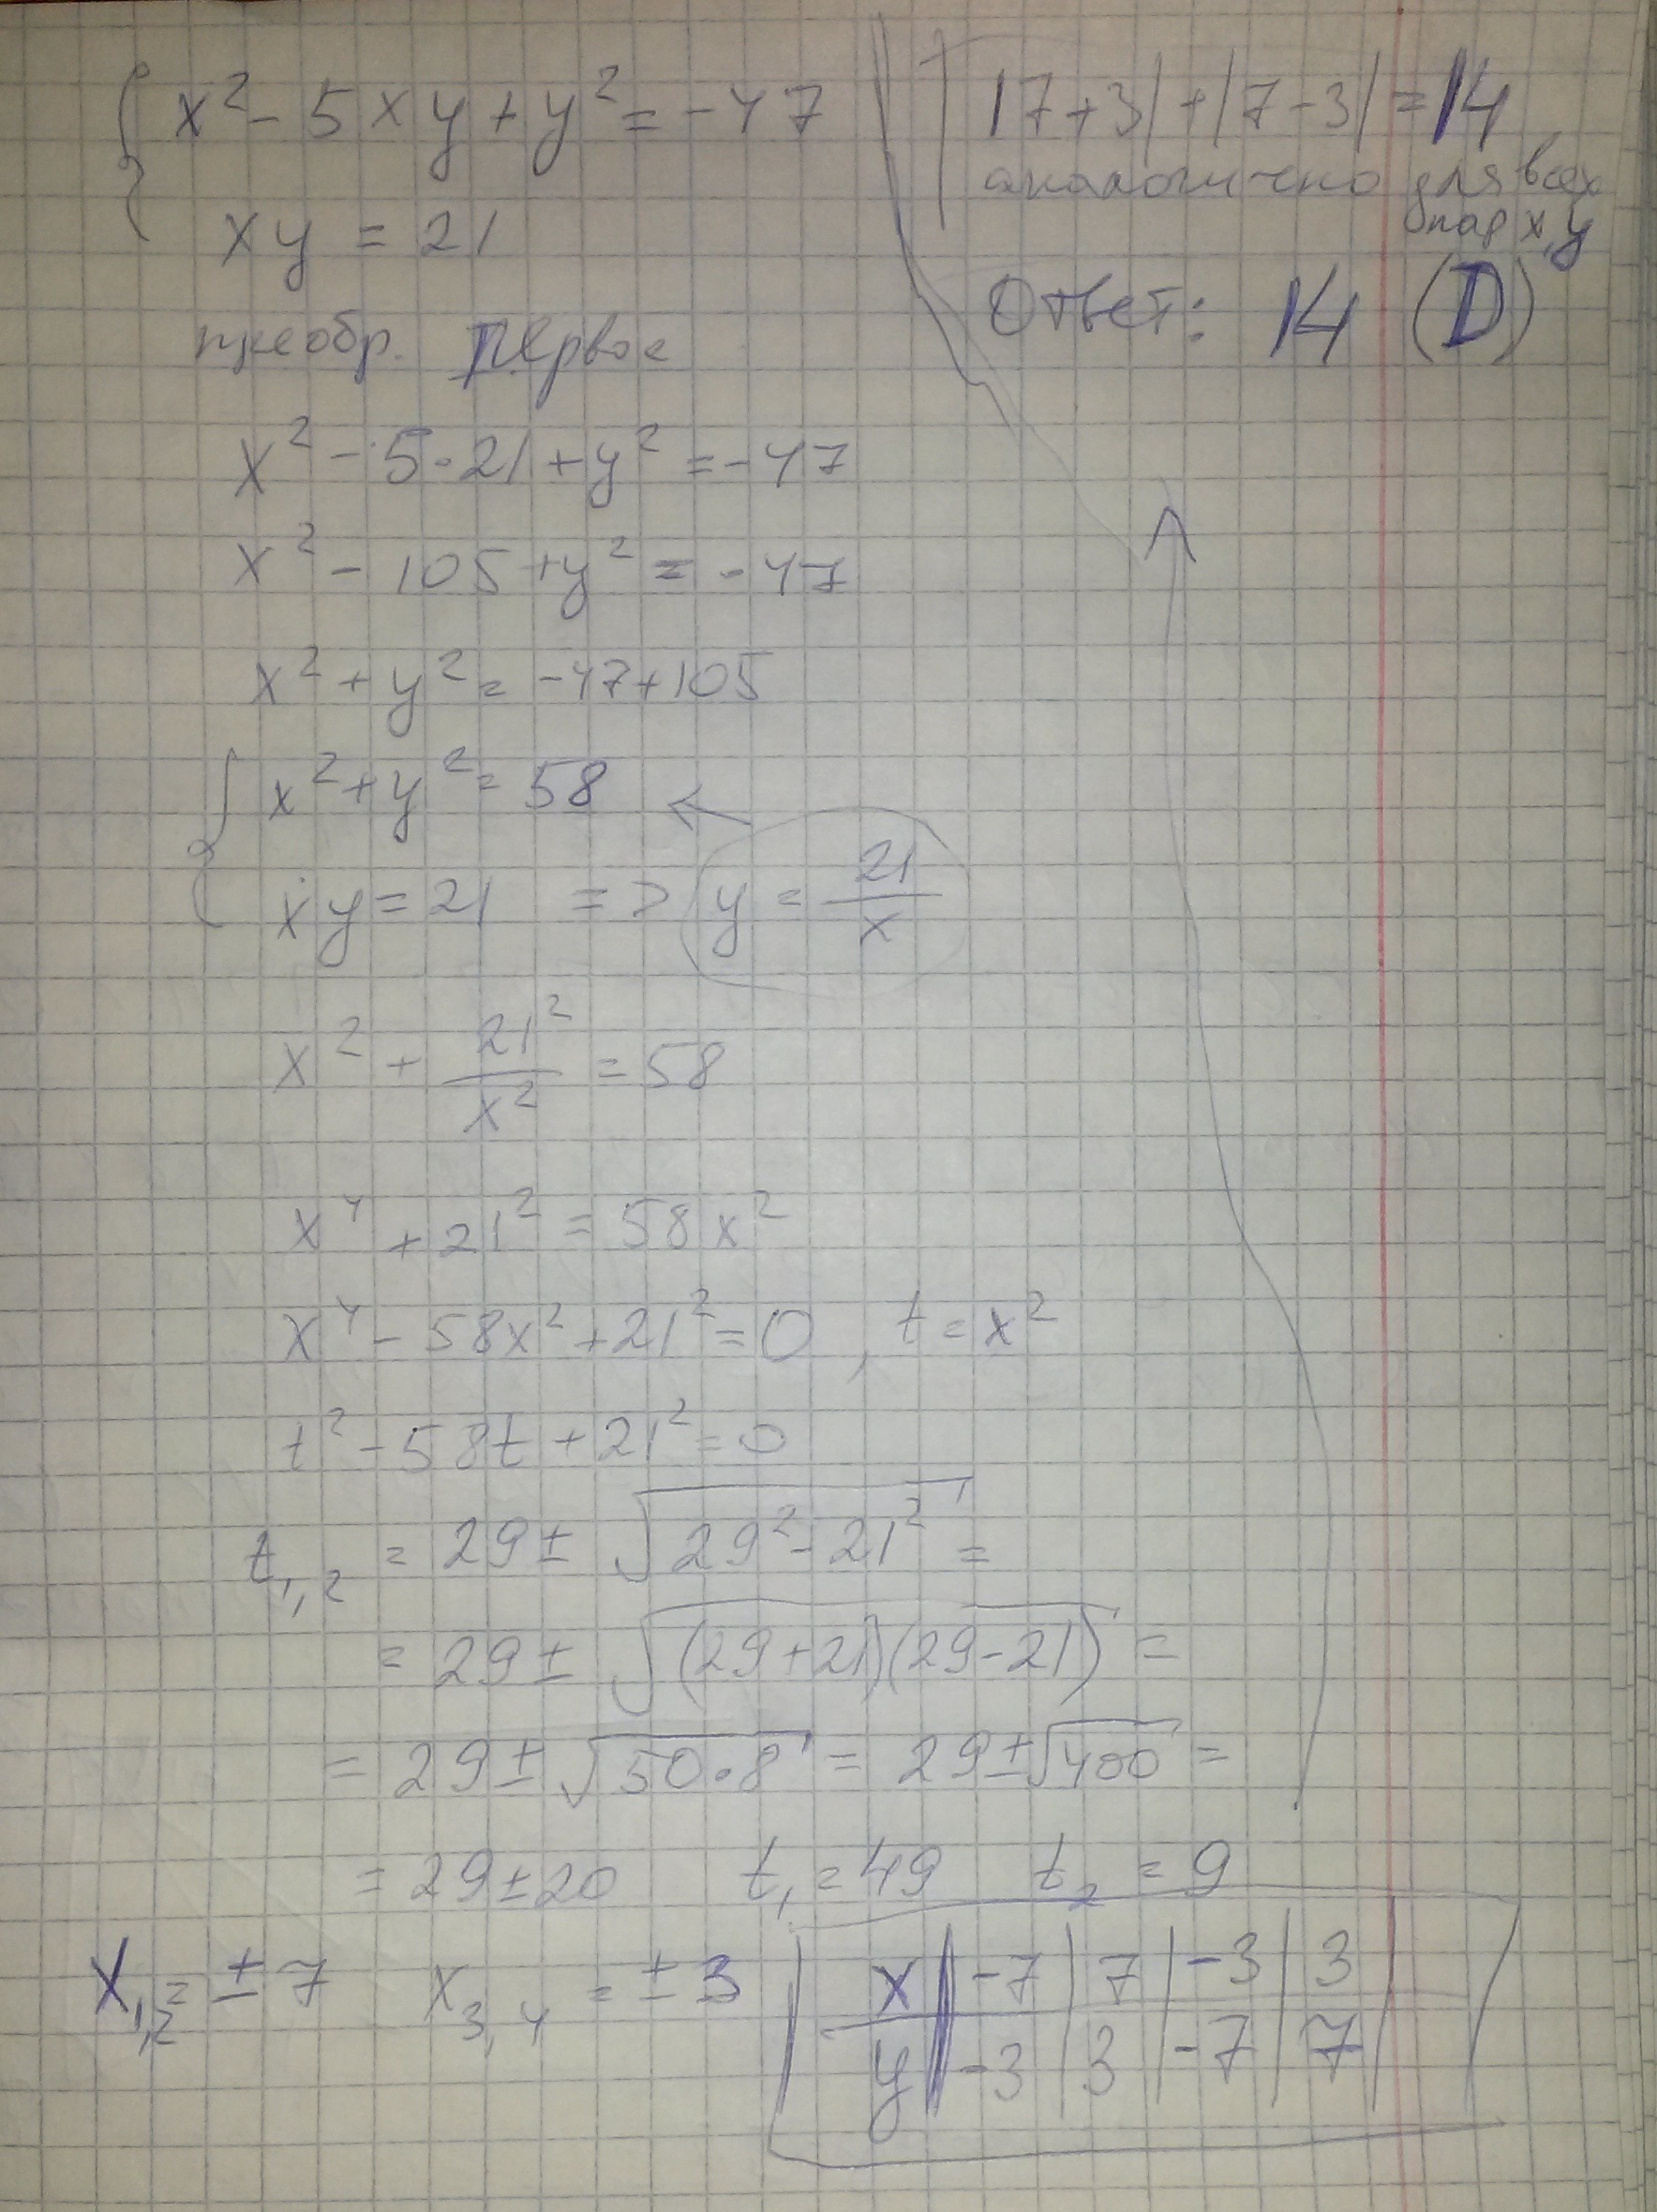 x² - 5xy + y² = -47
xy = 21
преобр. первое
x² - 5·21 + y² = -47
x² - 105 + y² = -47
x² + y² = -47 + 105
x² + y² = 58
xy = 21 => y = 21/x
x² + 21²/x² = 58
x⁴ + 21² = 58x²
x⁴ - 58x² + 21² = 0, t = x²
t² - 58t + 21² = 0
t₁,₂ = 29 ± √(29² - 21²) =
= 29 ± √((29+21)(29-21)) =
= 29 ± √(50·8) = 29 ± √400 =
= 29 ± 20 t₁ = 49 t₂ = 9
x₁,₂ = ±7 x₃,₄ = ±3
x | -7 | 7 | -3 | 3
y | -3 | 3 | -7 | 7
|7+3| + |7-3| = 14
аналогично для всех
пар x, y
Ответ: 14 (D)